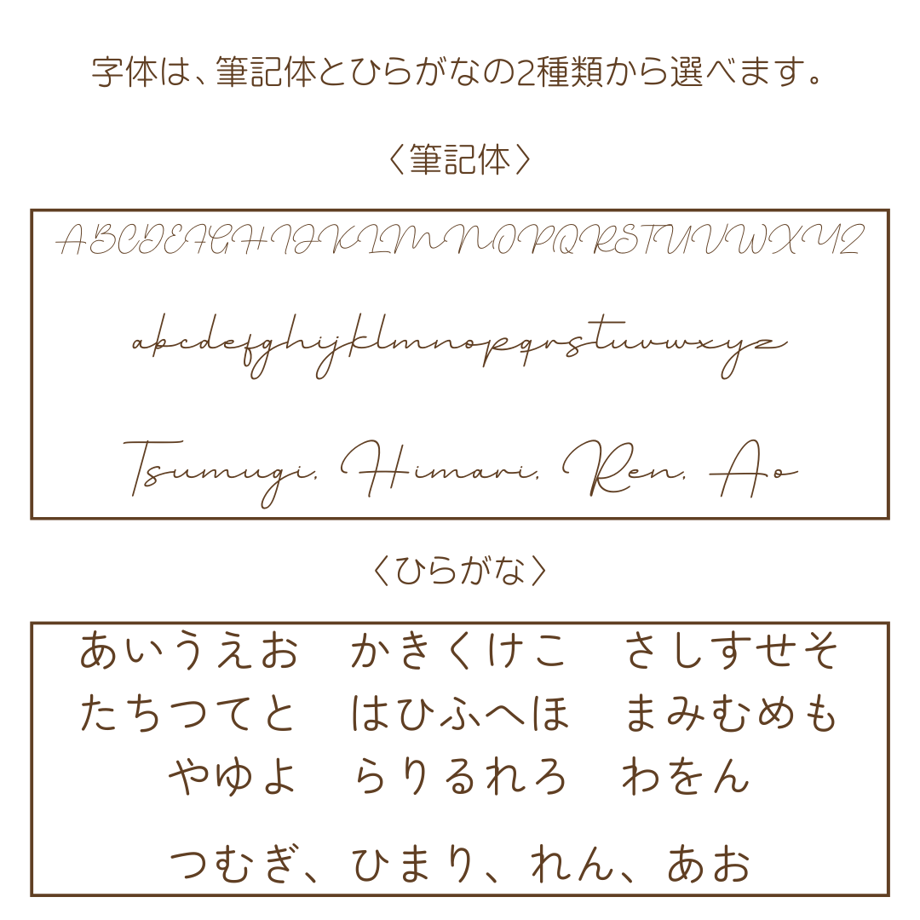 字体は、筆記体とひらがなの2種類から選べます。
〈筆記体〉
ABCDEFGHIJKLMNOPQRSTUVWXYZ
abcdefghijklmnopqrstuvwxyz
Tsumugi, Himari, Ren, Ao
〈ひらがな〉
あいうえお　かきくけこ　さしすせそ
たちつてと　はひふへほ　まみむめも
やゆよ　らりるれろ　わをん
つむぎ、ひまり、れん、あお